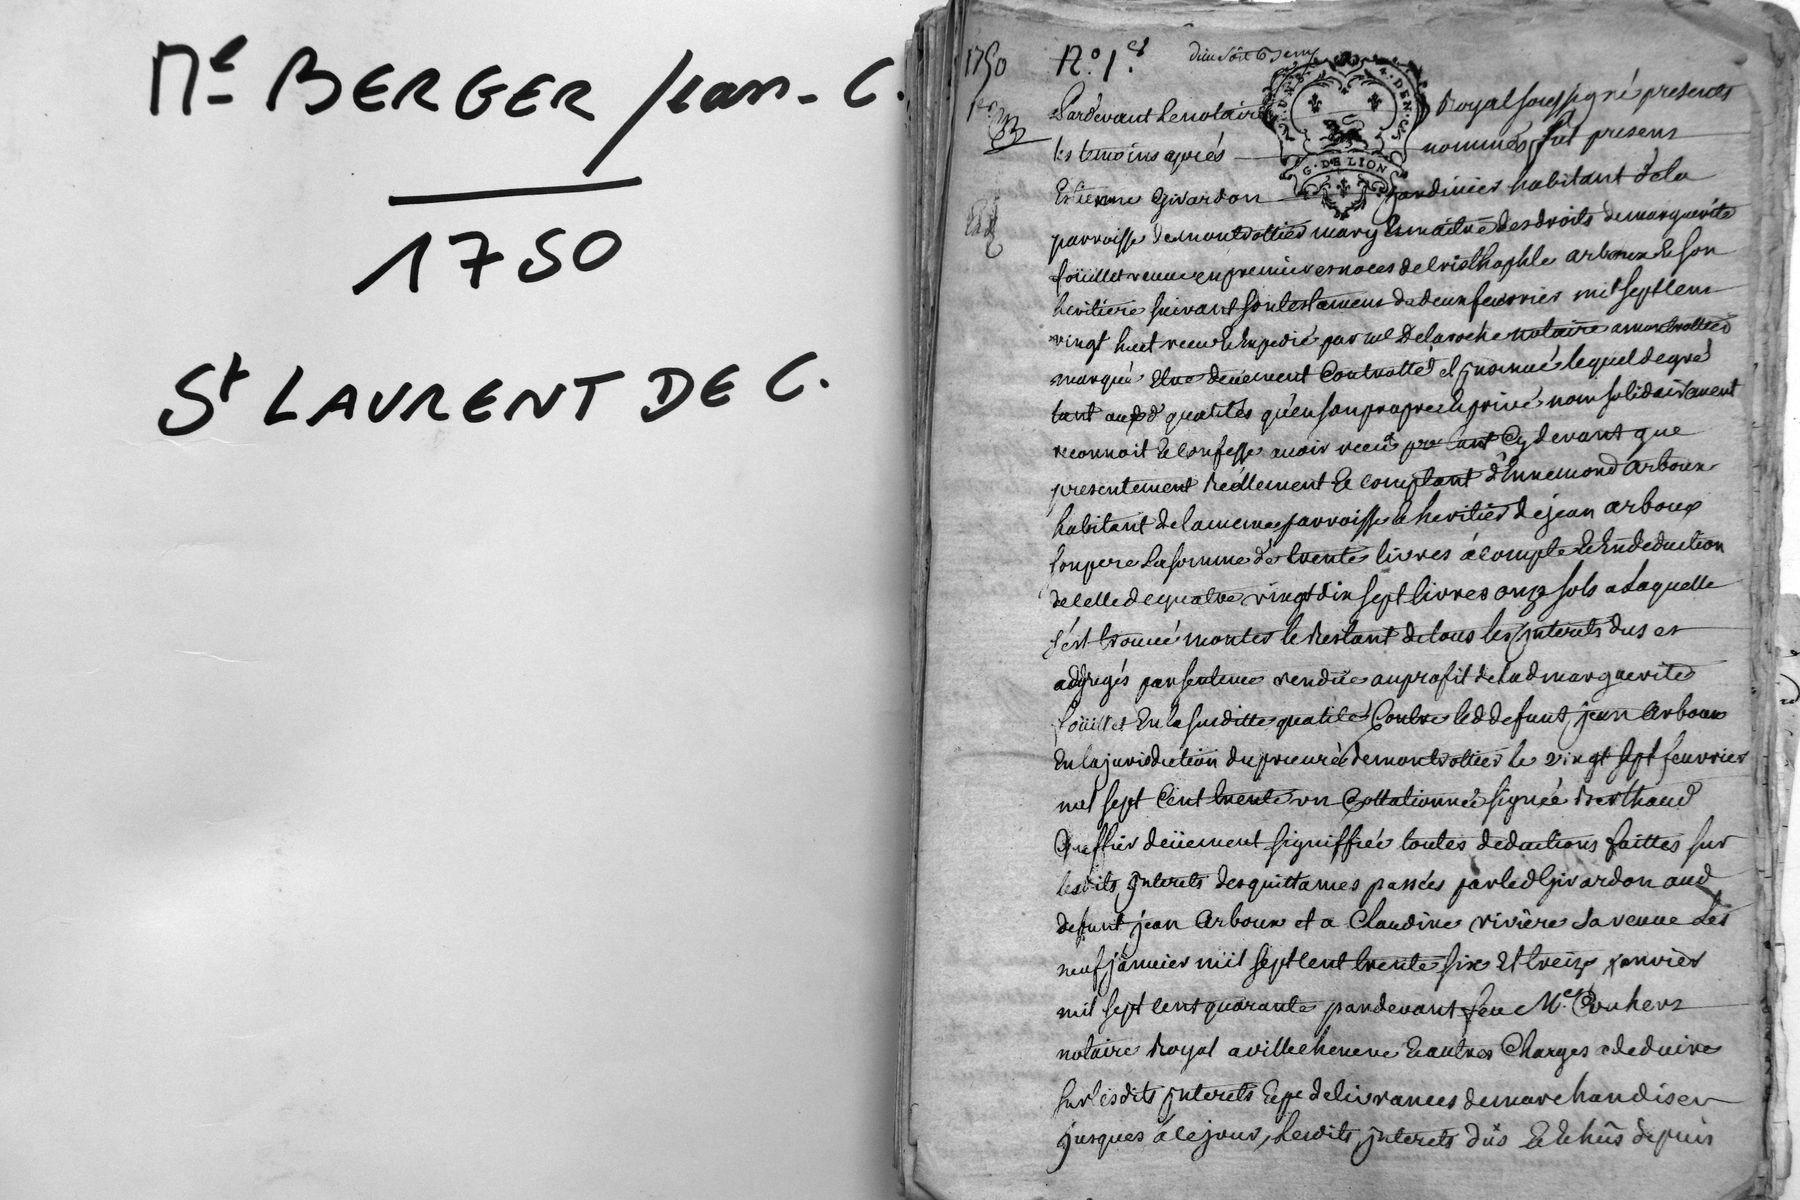 Me BERGER Jean-C.
1750
St LAURENT DE C.
1750 No. 1.er
Pardevant le notaire Royal soussigné presents
les temoins aprés nommés fut present
Estienne Girardon jardinier habitant de la
parroisse de montrottier mary & maitre des droits de marguerite
foüillet veuve en premieres noces de cristhophle arboux & son
heritiere suivant son testament du deux feuvrier mil sept cent
vingt huit receu & expedié par me Delaroche notaire a montrottier
marqué etre deuement Controllé et insinué lequel de gré
tant aud qualités qu'en son propre & privé nom solidairement
reconnoit & confesse avoir receu cy devant que
presentement réellement & comptant d'Ennemond arboux
habitant de la meme parroisse & heritier de jean arboux
son pere la somme de trente livres à compte & En deduction
de celle de quatre vingt dix sept livres onze sols a Laquelle
s'est trouvé monter le Restant de tous les jnterets dus et
adjugés par sentence rendüe au profit de lad marguerite
foüillet En la susditte qualité Contre led defunt jean Arboux
En la jurisdiction du prieuré de montrottier le vingt sept feuvrier
mil sept Cent trente un Collationnée signée Berthaud
Greffier deüement signiffiée toutes deductions faittes sur
lesdits jnterets des quittances passées par led Girardon aud
defunt jean Arboux et a Claudine rivière sa veuve Les
neuf janvier mil sept cent trente six Et treize janvier
mil sept cent quarante pardevant feu Me
notaire Royal a villecheneve & autres Charges a deduire
sur lesdits jnterets de livrances de marchandises
jusques à ce jour, lesdits jnterets dûs & Echûs depuis
G. DE LION